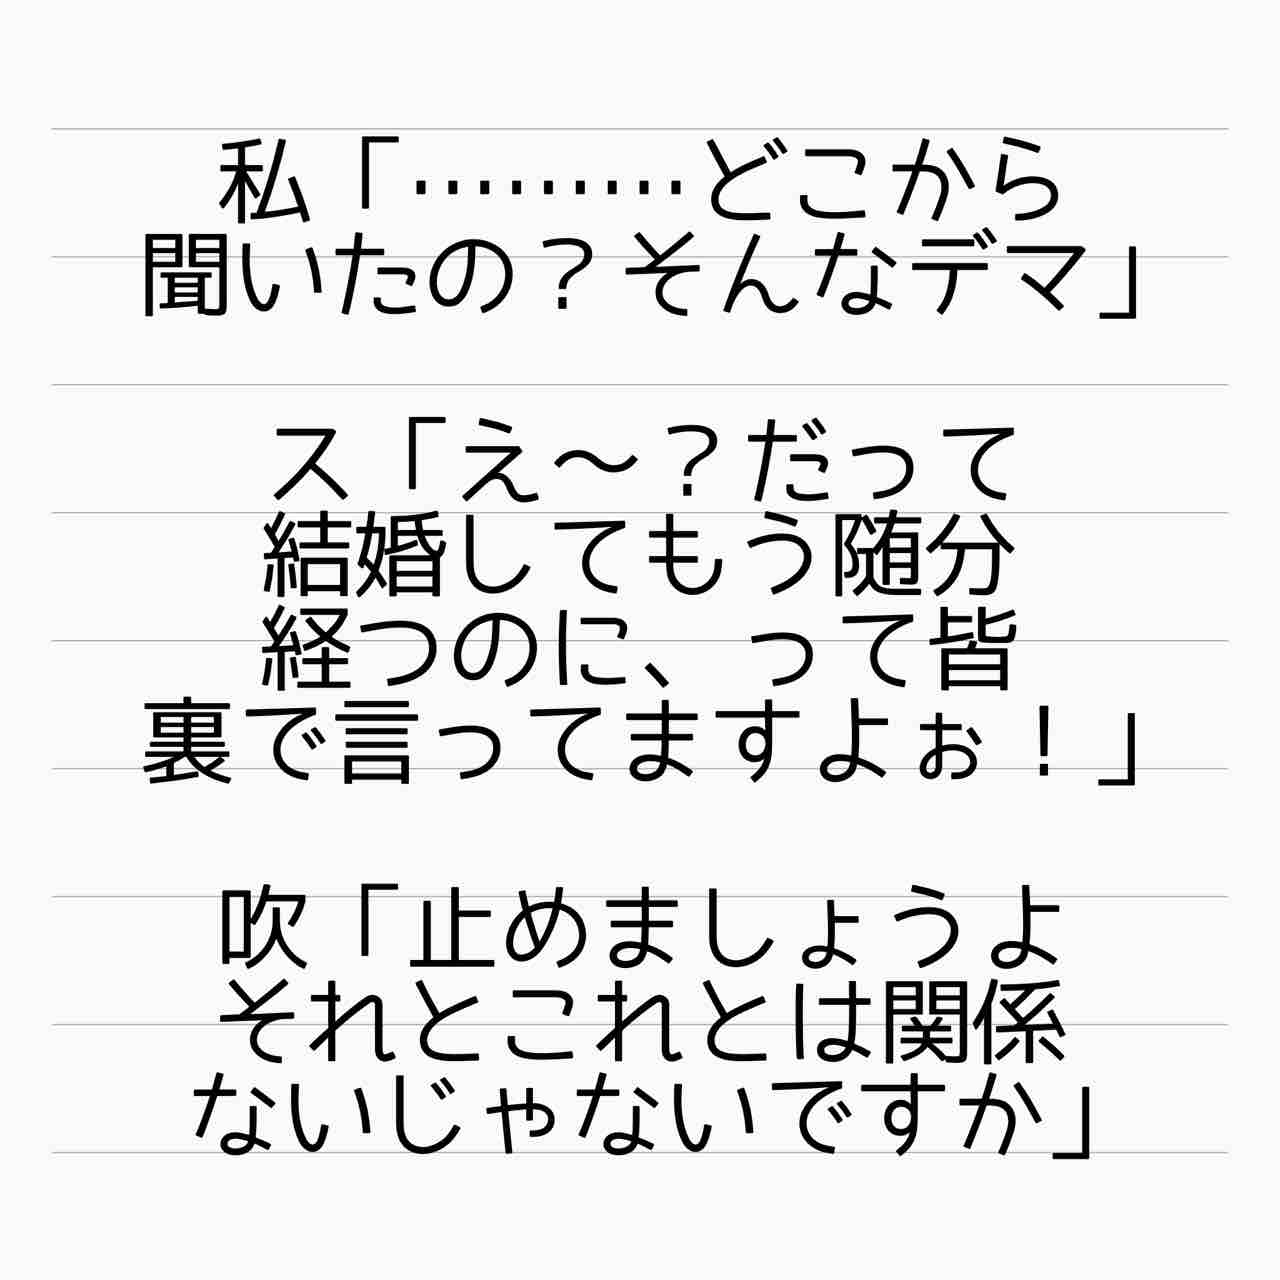 私「………どこから
聞いたの？そんなデマ」
ス「え〜？だって
結婚してもう随分
経つのに、って皆
裏で言ってますよぉ！」
吹「止めましょうよ
それとこれとは関係
ないじゃないですか」